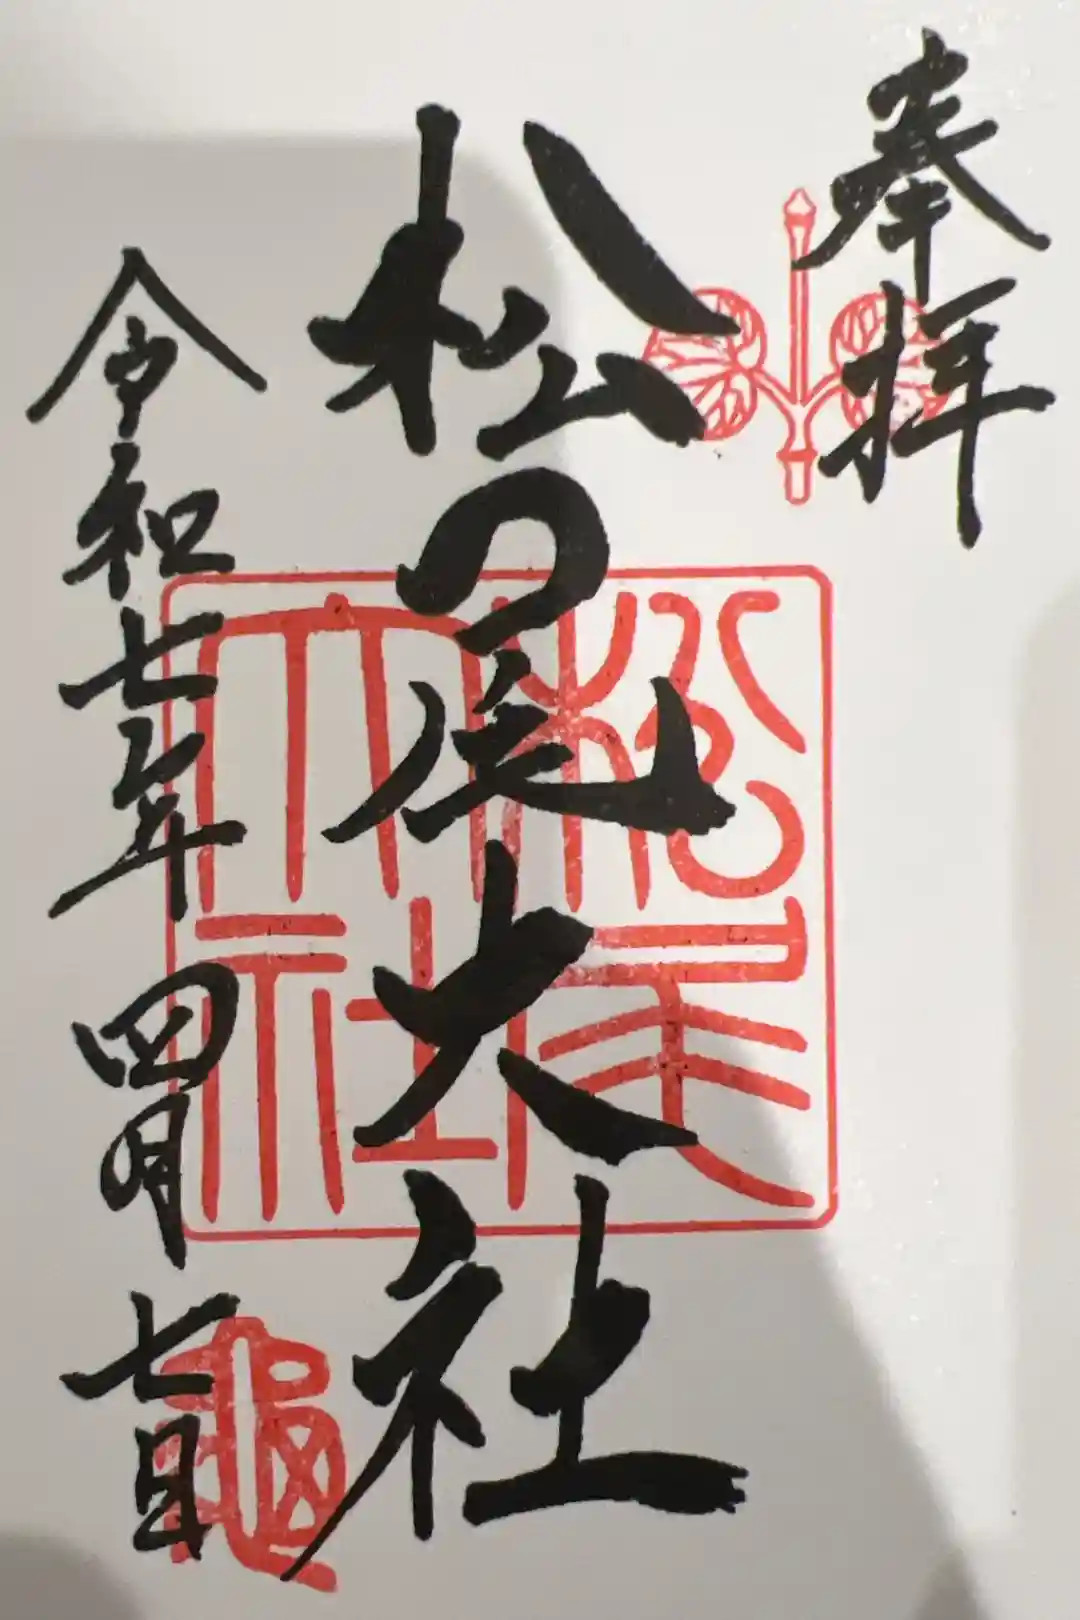 奉拝
松の尾大社
松尾
大社
令和七年四月七日
龜